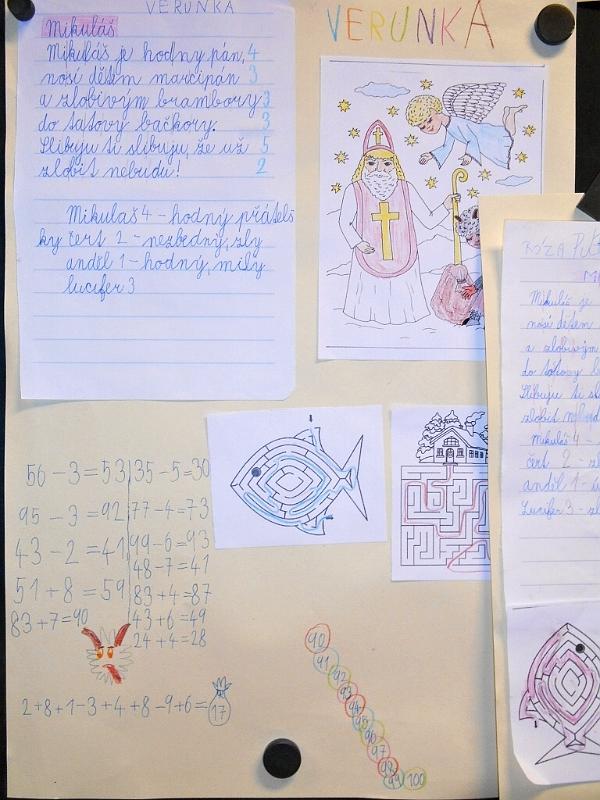 VERUNKA
Mikuláš
Mikuláš je hodný pán, 4
nosí dětem marcipán 3
a zlobivým brambory 3
do tátovy bačkory. 3
Slibuju ti slibuju, že už 5
zlobit nebudu! 2
Mikuláš 4 - hodný, přátels
ký čert 2 - nezbedný, zlý
anděl 1 - hodný, milý
lucifer 3
VERUNKA
RÓZA
Mikuláš je
nosí dětem
a zlobivým
do tátovy
Slibuju ti
zlobit
Mikuláš 4 -
čert 2 -
anděl 1 -
Lucifer 3 -
56-3=53
95-3=92
43-2=41
51+8=59
83+7=90
35-5=30
77-4=73
99-6=93
48-7=41
83+4=87
43+6=49
24+4=28
2+8+1-3+4+8-9+6=17
90
91
92
93
94
95
96
97
98
99 100